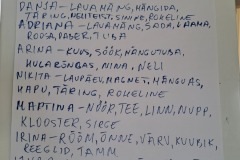 DANJA - LAVAHÄNG, HÄNGIDA,
TÄRING, HELITEIST, SININE, ROHELINE
ADRIANA - LAVAHÄNG, SADA, LAAMA,
ROOSA, PABER, TUBA
ARINA - KUUS, SÖÖK, MÄNGUTUBA,
HULARÕNGAS, NINA, NELI
NIKITA - LAUPÄEV, MAGNET, MÄNGUAS,
HAPU, TÄRING, ROHELINE
MARTINA - NÖÖR, TEE, LINN, NUPP,
KLOOSTER, SIRGE
IRINA - RÕÕM, ÕNNE, VÄRV, KUUBIK,
REEGLID, TAMM